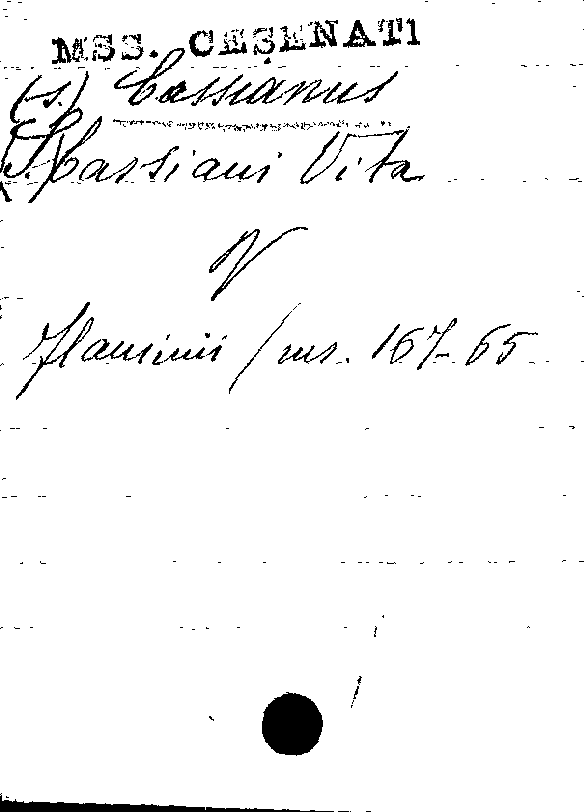 MSS. CESENATI
(S.) Cassianus
(S.) Cassiani Vita
V
Flaminii / ms. 167-65